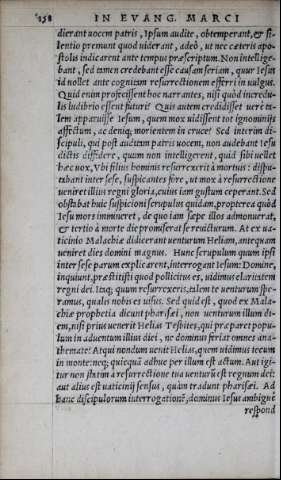 158 IN EVANG. MARCI
dierant uocem patris, Ipsum audite, obtemperant, & si-
lentio premunt quod uiderant, adeò, ut nec cæteris apo-
stolis indicarent ante tempus præscriptum. Non intellige-
bant, sed tamen credebant esse causam seriam, quur Iesus
id nollet ante resurrectionem efferri in uulgus.
Quid enim profecissent hoc narrantes, nisi quòd incredu-
lis ludibrio essent futuri? Quis autem credidisset uerè ta-
lem apparuisse Iesum, quem mox uidissent tot ignominijs
affectum, ac deniq; morientem in cruce? Sed interim di-
scipuli, qui post auditam patris uocem, non audebant Iesu
dictis diffidere, quum non intelligerent, quid sibi uellet
hæc uox, Vbi filius hominis resurrexerit à mortuis: dispu-
tabant inter sese, suspicantes fore, ut mox à resurrectione
ueniret illius regni gloria, cuius iam gustum ceperant. Sed
obstabat huic suspicioni scrupulus quidam, propterea quòd
Iesu mors immineret, de quo iam sæpe illos admonuerat,
& tertio à morte die promiserat se reuicturum. At ex ua-
ticinio Malachiæ didicerant uenturum Heliam, antequam
ueniret dies domini magnus. Hunc scrupulum quum ipsi
inter sese parum explicarent, interrogant Iesum: Domine,
inquiunt, præstitisti quod pollicitus es, uidimus claritatem
regni dei. Itaq; quum resurrexeris, talem te uenturum spe-
ramus, qualis nobis es uisus. Sed quid est, quod ex Mala-
chiæ prophetia dicunt pharisæi, non uenturum illum di-
em, nisi prius uenerit Helias Tesbites, qui præparet popu-
lum in aduentum illius diei, ne dominus feriat omnes ana-
themate? Atqui nondum uenit Helias, quem uidimus tecum
in monte: neq; quicquã adhuc per illum est actum. Aut igi-
tur non statim à resurrectione tua uenturũ est regnum dei:
aut alius est uaticinij sensus, quàm tradunt pharisæi. Ad
hanc discipulorum interrogationẽ, dominus Iesus ambiguè
respond